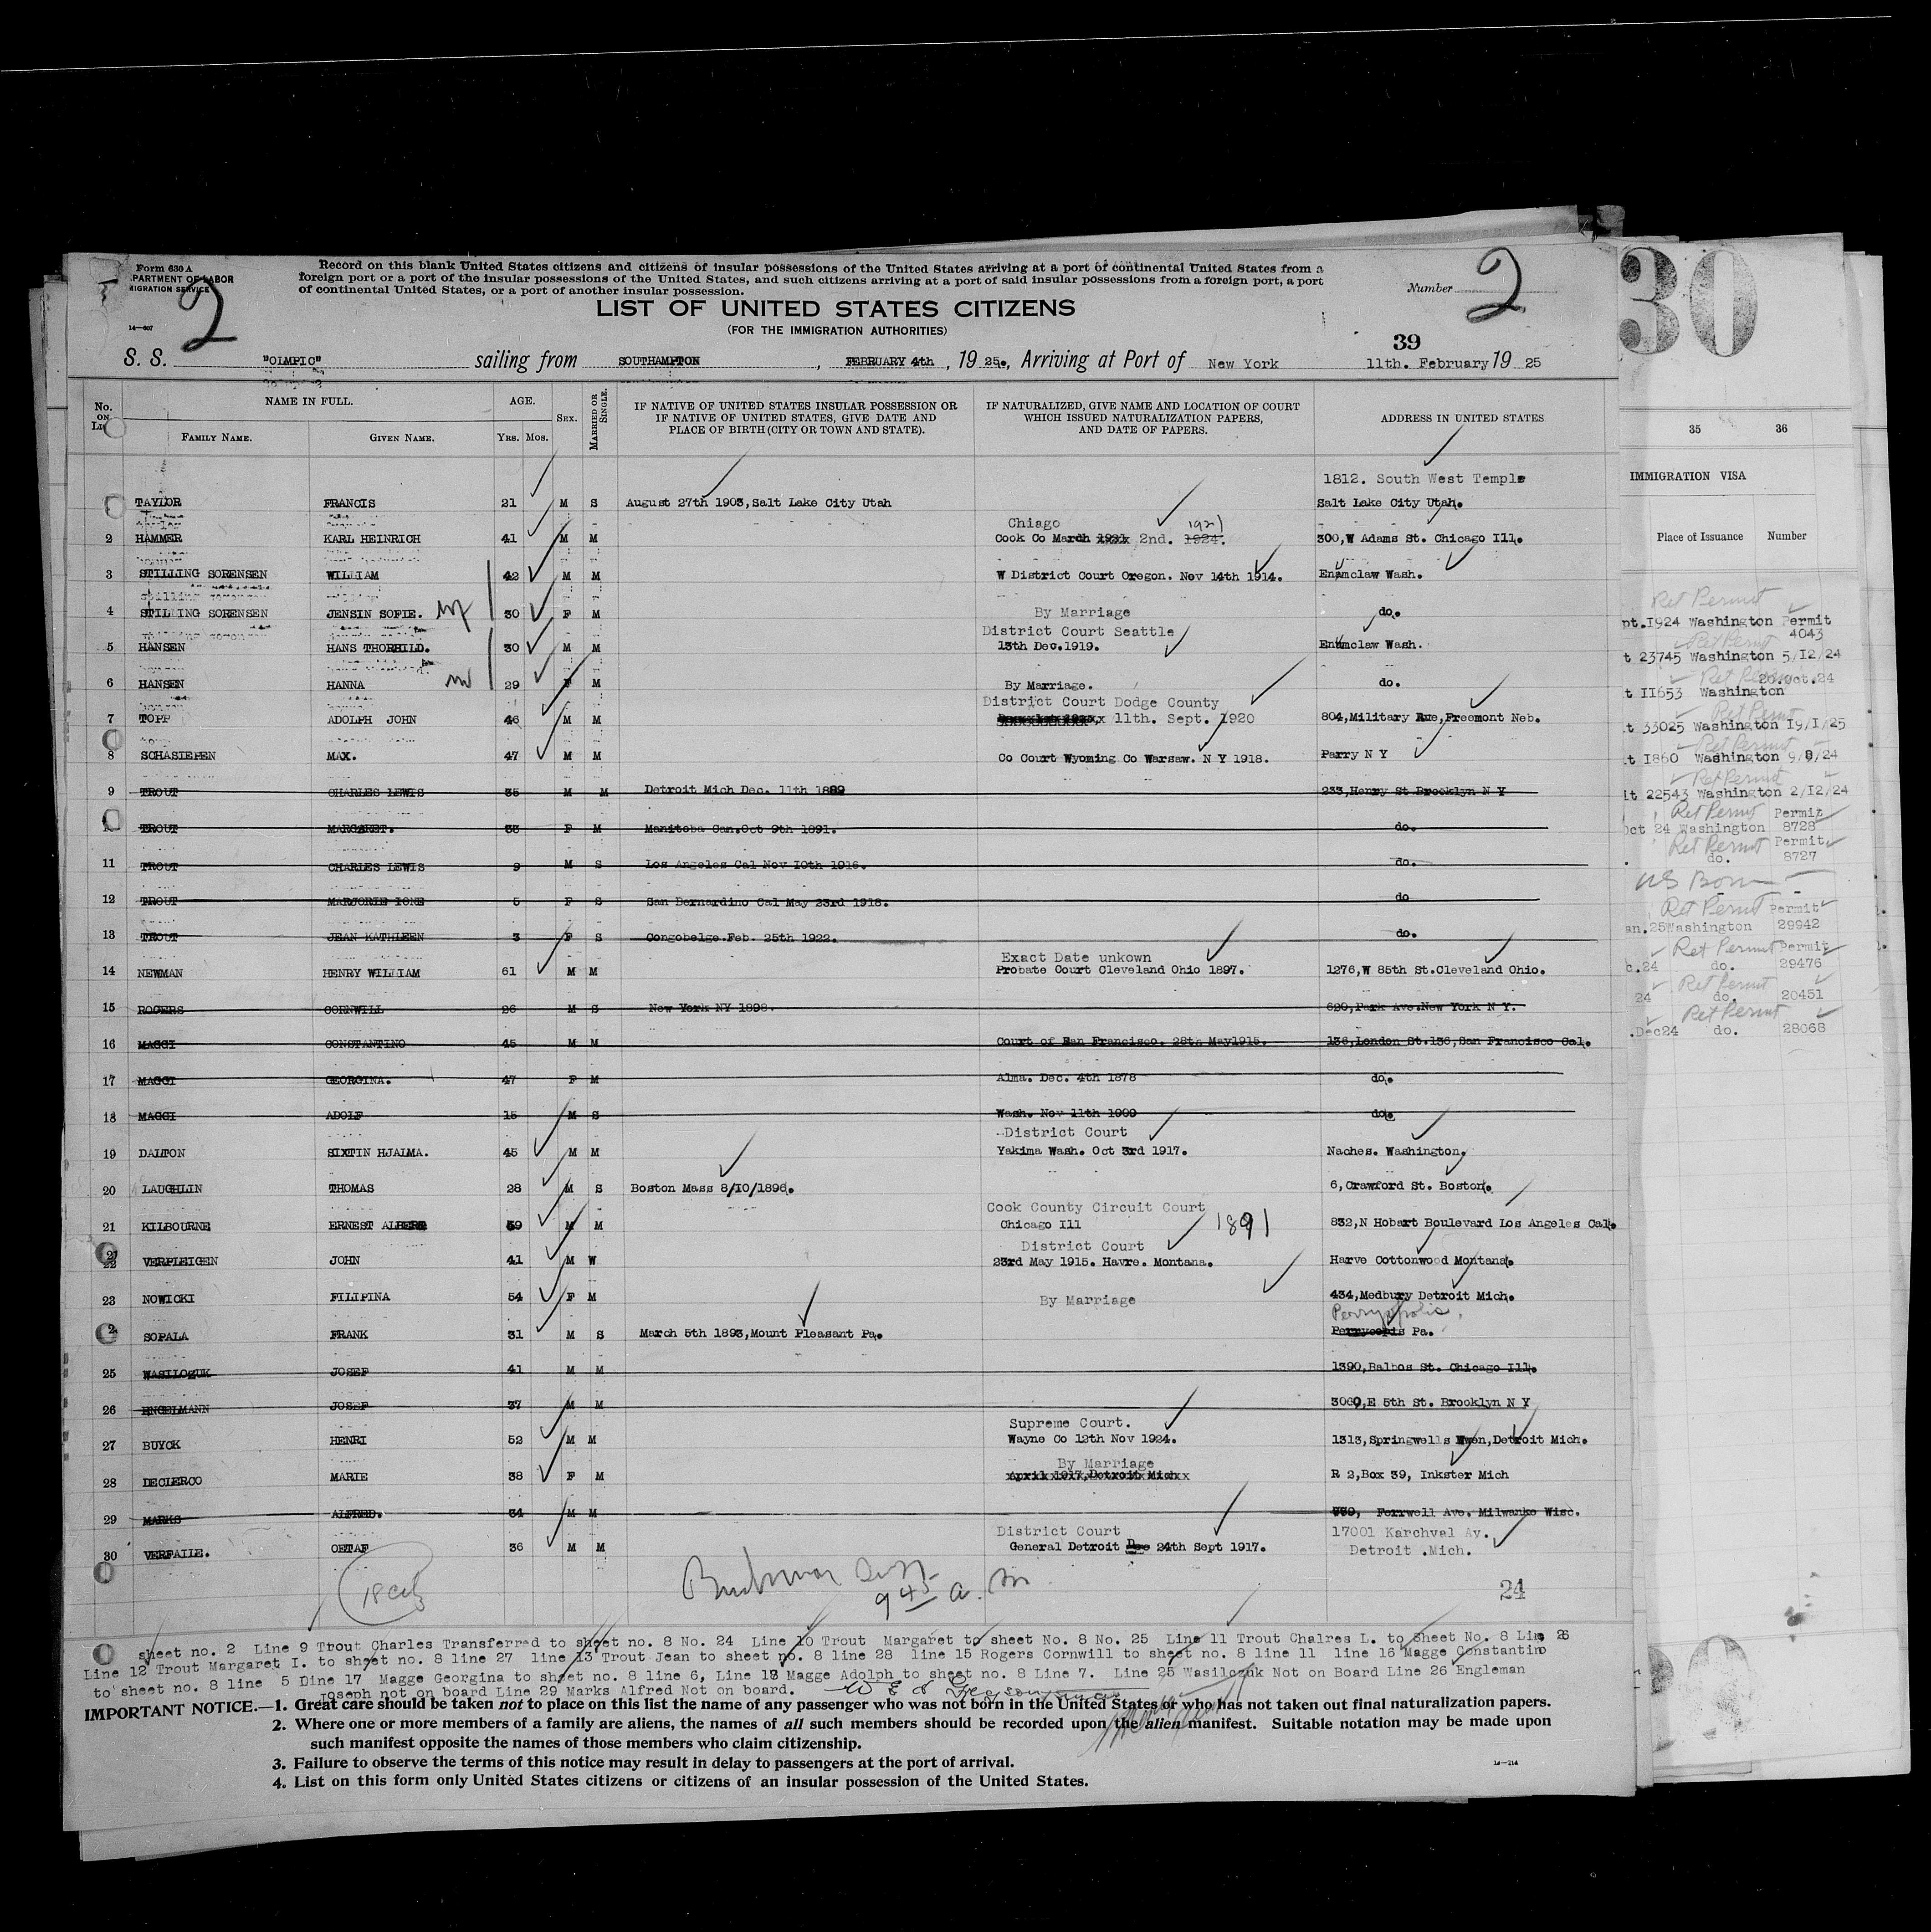 Form 630 A
PARTMENT OF LABOR
MIGRATION SERVICE
14—607
2
Record on this blank United States citizens and citizens of insular possessions of the United States arriving at a port of continental United States from a
foreign port or a part of the insular possessions of the United States, and such citizens arriving at a port of said insular possessions from a foreign port, a port
of continental United States, or a port of another insular possession.
LIST OF UNITED STATES CITIZENS
(FOR THE IMMIGRATION AUTHORITIES)
Number
2
30
39
S. S. "OLMPIC" sailing from SOUTHAMPTON, FEBRUARY 4th, 19 25., Arriving at Port of New York 11th. February 19 25
No. ON LIST NAME IN FULL. AGE. SEX. MARRIED OR SINGLE. IF NATIVE OF UNITED STATES INSULAR POSSESSION OR IF NATIVE OF UNITED STATES, GIVE DATE AND PLACE OF BIRTH (CITY OR TOWN AND STATE). IF NATURALIZED, GIVE NAME AND LOCATION OF COURT WHICH ISSUED NATURALIZATION PAPERS, AND DATE OF PAPERS. ADDRESS IN UNITED STATES
FAMILY NAME. GIVEN NAME. Yrs. Mos.
1812. South West Temple
TAYLOR FRANCIS 21 M S August 27th 1903, Salt Lake City Utah Salt Lake City Utah.
Chiago 1921
2 HAMMER KARL HEINRICH 41 M M Cook Co March 1921 2nd. 1924. 300,W Adams St. Chicago Ill.
3 STILLING SORENSEN WILLIAM 42 M M W District Court Oregon. Nov 14th 1914. Enumclaw Wash.
4 STILLING SORENSEN JENSIN SOFIE. 30 F M By Marriage do.
District Court Seattle
5 HANSEN HANS THORHILD. 30 M M 13th Dec.1919. Enumclaw Wash.
6 HANSEN HANNA 29 F M By Marriage. do.
District Court Dodge County
7 TOPP ADOLPH JOHN 46 M M 11th. Sept. 1920 804,Military Ave,Freemont Neb.
8 SCHASIEPEN MAX. 47 M M Co Court Wyoming Co Warsaw. N Y 1918. Parry N Y
9 TROUT CHARLES LEWIS 35 M M Detroit Mich Dec. 11th 1889 233,Henry St Brooklyn N Y
TROUT MARGARET. 33 F M Manitoba Can.Oct 9th 1891. do.
11 TROUT CHARLES LEWIS 9 M S Los Angeles Cal Nov 10th 1916. do.
12 TROUT MARJORIE IONE 5 F S San Bernardino Cal May 23rd 1918. do
13 TROUT JEAN KATHLEEN 3 F S Congobelge.Feb. 25th 1922. do.
Exact Date unkown
14 NEWMAN HENRY WILLIAM 61 M M Probate Court Cleveland Ohio 1897. 1276,W 85th St.Cleveland Ohio.
15 ROGERS CORNWILL 26 M S New York NY 1898. 620,Park Ave.New York N Y.
16 MAGGI CONSTANTINO 45 M M Court of San Francisco. 28th May1915. 136,London St.136,San Francisco Cal.
17 MAGGI GEORGINA. 47 F M Alma. Dec. 4th 1878 do.
18 MAGGI ADOLF 15 M S Wash. Nov 11th 1909 do.
District Court
19 DALTON SIXTIN HJALMA. 45 M M Yakima Wash. Oct 3rd 1917. Naches. Washington.
20 LAUGHLIN THOMAS 28 M S Boston Mass 8/10/1896. 6,Crawford St. Boston.
Cook County Circuit Court
21 KILBOURNE ERNEST ALBERT 59 M M Chicago Ill 1891 832,N Hobart Boulevard Los Angeles Cal.
District Court
22 VERPLEIGEN JOHN 41 M W 23rd May 1915. Havre. Montana. Harve Cottonwood Montana.
23 NOWICKI FILIPINA 54 F M By Marriage 434,Medbury Detroit Mich.
Perryopolis.
2 SOPALA FRANK 31 M S March 5th 1893,Mount Pleasant Pa. Pa.
25 WASILOGUK JOSEF 41 M M 1390,Balbos St. Chicago Ill.
26 ENGELMANN JOSEF 37 M M 3060,E 5th St. Brooklyn N Y
Supreme Court.
27 BUYCK HENRI 52 M M Wayne Co 12th Nov 1924. 1313,Springwells Detroit Mich.
By Marriage
28 DECLERCO MARIE 38 F M April 1917,Detroit Mich R 2,Box 39, Inkster Mich
29 MARKS ALFRED. 34 M M Ferrwell Ave. Milwanke Wisc.
District Court 17001 Karchval Av.
30 VERFAILE. OETAF 36 M M General Detroit Dec 24th Sept 1917. Detroit .Mich.
9 45 a. m.
24
sheet no. 2 Line 9 Trout Charles Transferred to sheet no. 8 No. 24 Line 10 Trout Margaret to sheet No. 8 No. 25 Line 11 Trout Chalres L. to Sheet No. 8 Line 26
Line 12 Trout Margaret I. to sheet no. 8 line 27 line 13 Trout Jean to sheet no. 8 line 28 line 15 Rogers Cornwill to sheet no. 8 line 11 line 16 Magge Constantino
to sheet no. 8 line 5 Dine 17 Magge Georgina to sheet no. 8 line 6, Line 18 Magge Adolph to sheet no. 8 Line 7. Line 25 Wasilozuk Not on Board Line 26 Engleman
Joseph not on board Line 29 Marks Alfred Not on board.
IMPORTANT NOTICE.—1. Great care should be taken not to place on this list the name of any passenger who was not born in the United States or who has not taken out final naturalization papers.
2. Where one or more members of a family are aliens, the names of all such members should be recorded upon the alien manifest. Suitable notation may be made upon
such manifest opposite the names of those members who claim citizenship.
3. Failure to observe the terms of this notice may result in delay to passengers at the port of arrival.
4. List on this form only United States citizens or citizens of an insular possession of the United States.
14—214
35 36
IMMIGRATION VISA
Place of Issuance Number
Ret Permit
pt.1924 Washington Permit
4043
Ret Permit
t 23745 Washington 5/12/24
Ret Permit 20.Oct.24
t 11653 Washington
Ret Permit
t 33025 Washington 19/1/25
Ret Permit
t 1860 Washington 9/8/24
Ret Permit
it 22543 Washington 2/12/24
Ret Permit Permit
Oct 24 Washington 8728
Ret Permit Permit
do. 8727
US Born
Ret Permit Permit
an.25Washington 29942
Ret Permit Permit
c.24 do. 29476
Ret Permit
24 do. 20451
Ret Permit
.Dec24 do. 28068